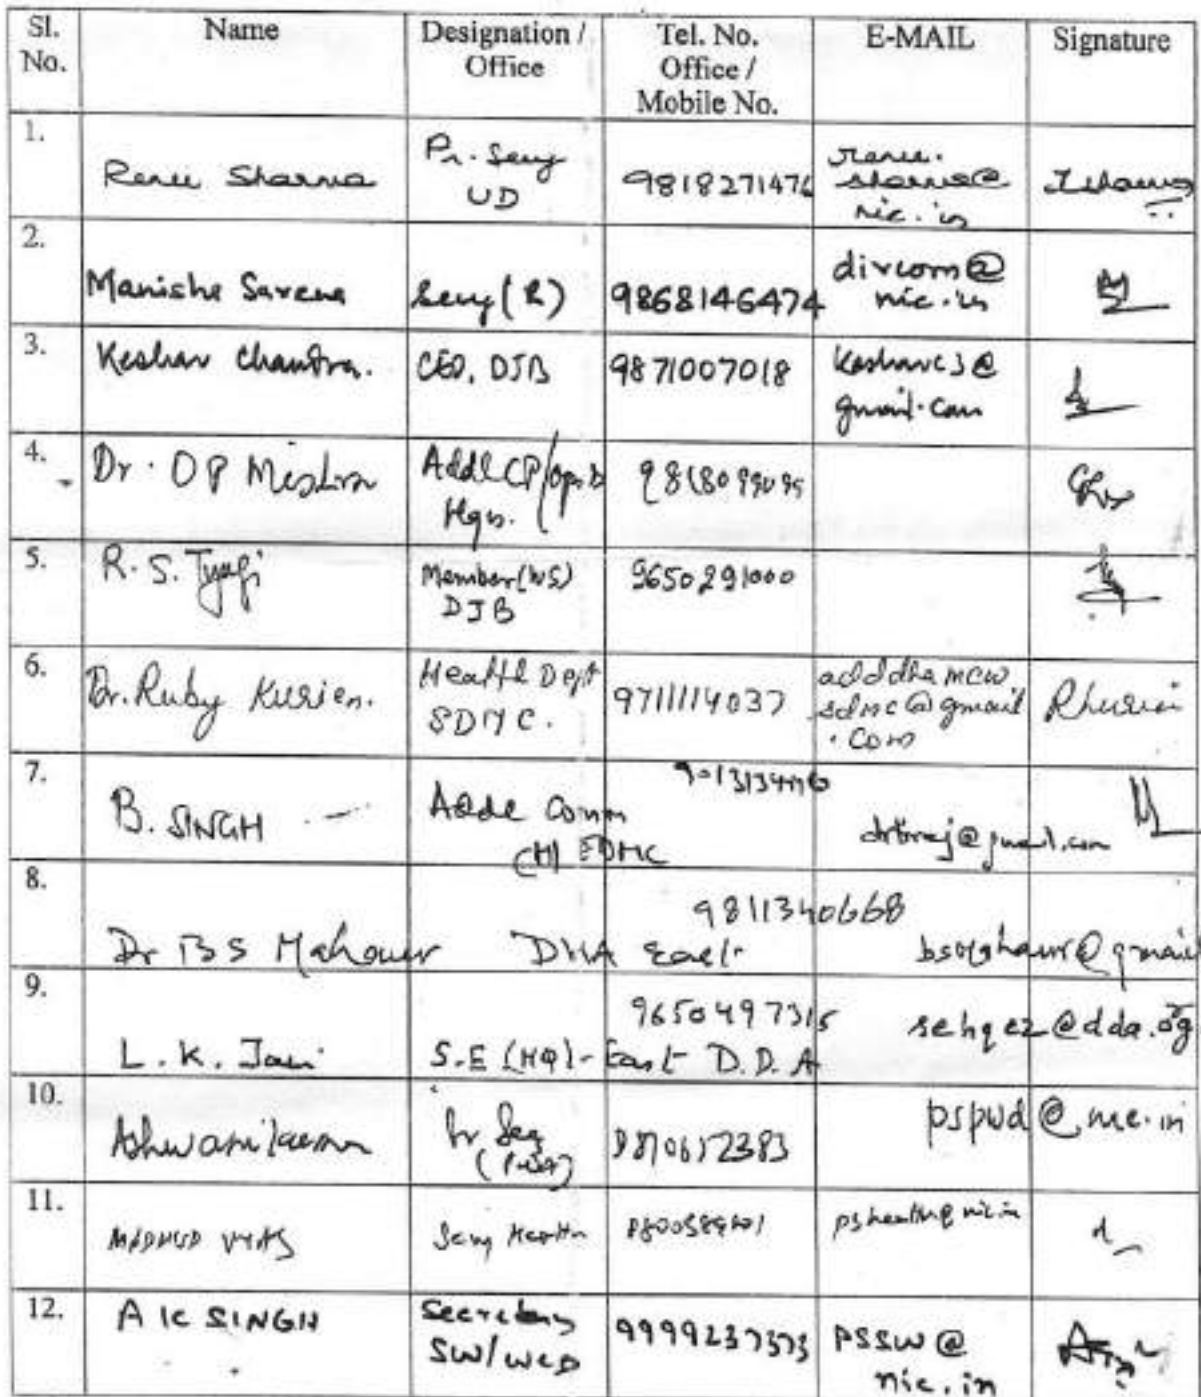 Sl. No. Name Designation / Office Tel. No. Office / Mobile No. E-MAIL Signature
1. Renu Sharma Pr. Secy UD 9818271476 renu.sharma@nic.in
2. Manisha Saxena Secy (R) 9868146474 dircom@nic.in
3. Keshav Chandra. CEO, DJB 9871007018 gmail.com
4. Dr. OP Mishra Addl CP/ Hqrs.
5. R. S. Tyagi Member (WS) DJB 9650291000
6. Dr. Ruby Kurien. Health Dept SDMC. 9711114037 addldhamcw sdmc@gmail.com
7. B. SINGH Addl Comm (H) EDMC
8. Dr BS DHA East 9811340668
9. L. K. Jain S.E (HQ)- East D.D.A 9650497315 sehqez@dda.org
10. Pr Secy pspwd@nic.in
11. Secy Health pshealth@nic.in
12. A K SINGH Secretary SW/WCD 9999237373 PSSW@nic.in